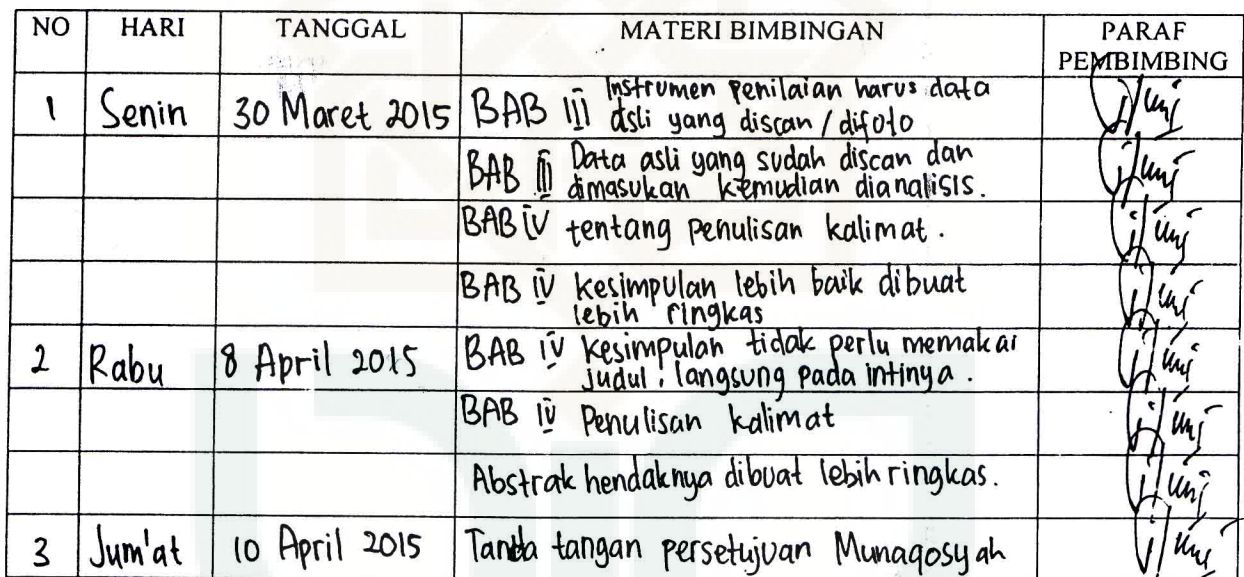 NO HARI TANGGAL MATERI BIMBINGAN PARAF
PEMBIMBING
1 Senin 30 Maret 2015 BAB III Instrumen Penilaian harus data
asli yang discan / difoto
BAB III Data asli yang sudah discan dan
dimasukan kemudian dianalisis.
BAB IV tentang Penulisan kalimat.
BAB IV kesimpulan lebih baik dibuat
lebih ringkas
2 Rabu 8 April 2015 BAB IV kesimpulan tidak perlu memakai
judul, langsung pada intinya.
BAB IV Penulisan kalimat
Abstrak hendaknya dibuat lebih ringkas.
3 Jum'at 10 April 2015 Tanda tangan persetujuan Munaqosyah